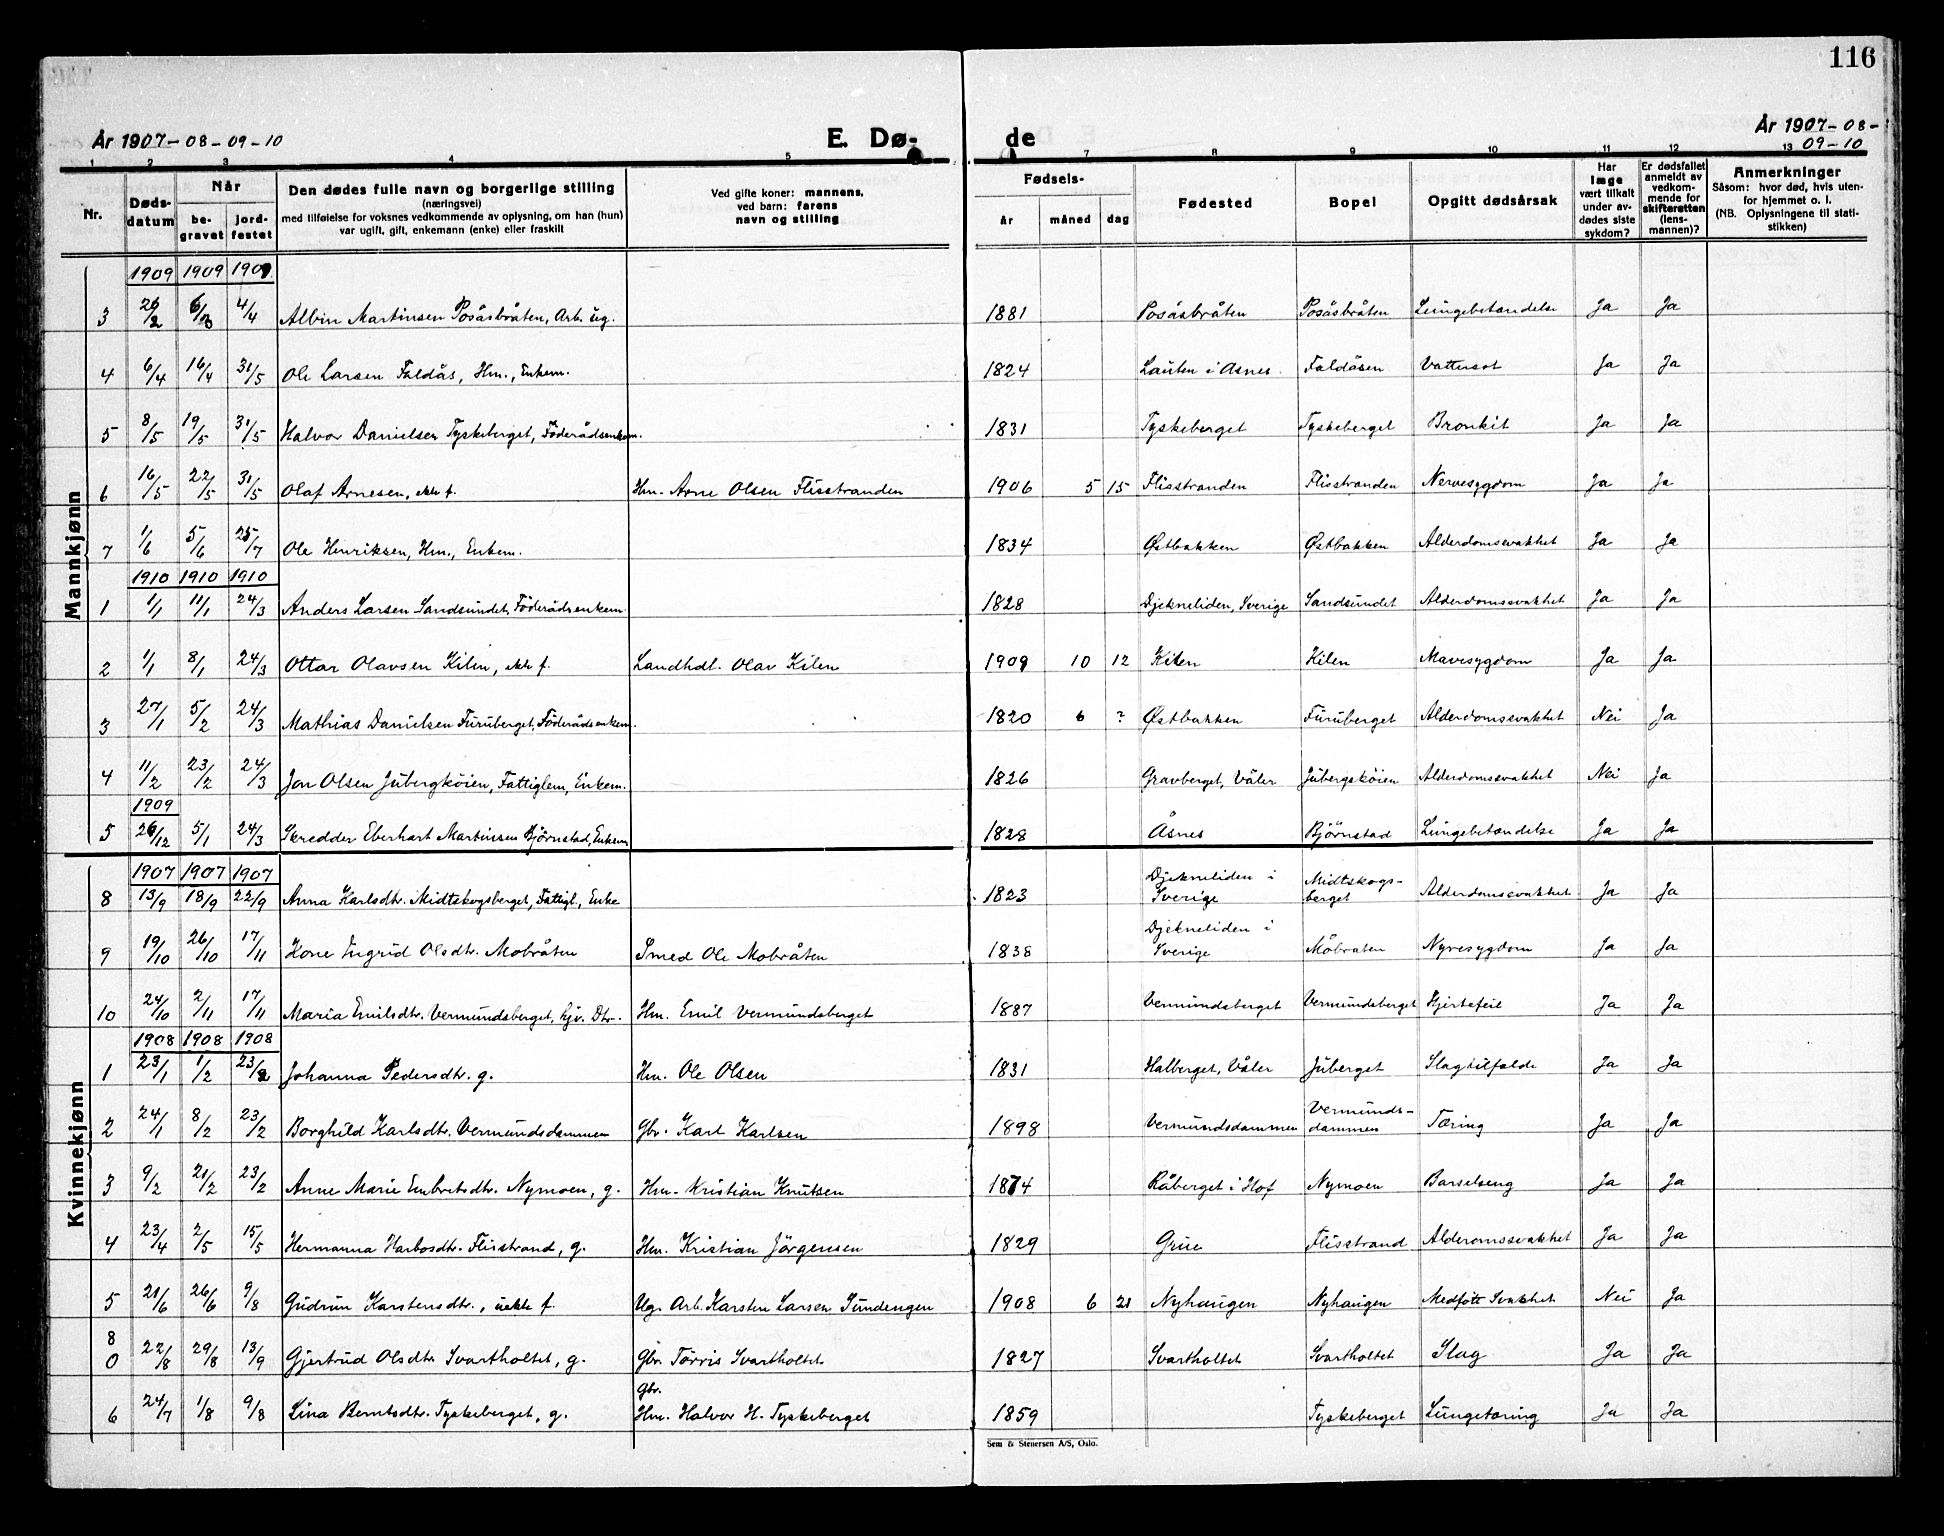 116
År 1907-08-09-10 E. Dø- de År 1907-08-09-10
1 2 3 4 5 7 8 9 10 11 12 13
Nr. Dødsdatum Når begravet jordfestet Den dødes fulle navn og borgerlige stilling (næringsvei) med tilføielse for voksnes vedkommende av oplysning, om han (hun) var ugift, gift, enkemann (enke) eller fraskilt Ved gifte koner: mannens, ved barn: farens navn og stilling Fødsels- år måned dag Fødested Bopel Opgitt dødsårsak Har læge vært tilkalt under avdødes siste sykdom? Er dødsfallet anmeldt av vedkommende for skifteretten (lensmannen)? Anmerkninger Såsom: hvor død, hvis utenfor hjemmet o. l. (NB. Oplysningene til statistikken)
Mannkjønn
1909 1909 1909
3 26/2 6/3 4/4 Albin Martinsen Posåsbråten, Arb. ug. 1881 Posåsbråten Posåsbråten Lungebetændelse Ja Ja
4 6/4 16/4 31/5 Ole Larsen Faldås, Hm., Enkem. 1824 Lauten i Åsnes. Faldåsen Vattersot Ja Ja
5 8/5 19/5 31/5 Halvor Danielsen Tyskeberget, Föderådsenkem. 1831 Tyskeberget Tyskeberget Bronkit Ja Ja
6 16/5 22/5 31/5 Olaf Arnesen, ekte f. Hm. Arne Olsen Flisstranden 1906 5 15 Flisstranden Flisstranden Nervesygdom Ja Ja
7 1/6 5/6 25/7 Ole Henriksen, Hm., Enkem. 1834 Østbakken Østbakken Alderdomssvakhet Ja Ja
1910 1910 1910
1 1/1 11/1 24/3 Anders Larsen Sandsundet, Föderådsenkem. 1828 Djekneliden, Sverige Sandsundet Alderdomssvakhet Ja Ja
2 1/1 8/1 24/3 Ottar Olavsen Kilen, ekte f. Landhdl. Olav Kilen 1909 10 12 Kilen Kilen Mavesygdom Ja Ja
3 27/1 5/2 24/3 Mathias Danielsen Furuberget, Föderådsenkem. 1820 6 ? Østbakken Furuberget Alderdomssvakhet Nei Ja
4 11/2 23/2 24/3 Jon Olsen Jubergkøien, Fattiglem, Enkem. 1826 Gravberget, Våler Jubergskøien Alderdomssvakhet Nei Ja
1909
5 26/12 5/1 24/3 Skredder Eberhart Martinsen Bjørnstad, Enkem. 1828 Åsnes Bjørnstad Lungebetændelse Ja Ja
Kvinnekjønn
1907 1907 1907
8 13/9 18/9 22/9 Anna Karlsdtr. Midtskogsberget, Fattigl., Enke 1823 Djekneliden i Sverige Midtskogsberget Alderdomssvakhet Ja Ja
9 19/10 26/10 17/11 Kone Ingrid Olsdtr. Mobråten Smed Ole Mobråten 1838 Djekneliden i Sverige Mobråten Nyresygdom Ja Ja
10 24/10 2/11 17/11 Maria Emilsdtr. Vermundsberget, hjv. Dtr. Hm. Emil Vermundsberget 1887 Vermundsberget Vermundsberget Hjertefeil Ja Ja
1908 1908 1908
1 23/1 1/2 23/2 Johanna Pedersdtr. g. Hm. Ole Olsen 1831 Halberget, Våler Juberget Slagtilfælde Ja Ja
2 24/1 8/2 23/2 Borghild Karlsdtr. Vermundsdammen Gbr. Karl Karlsen 1898 Vermundsdammen Vermundsdammen Tæring Ja Ja
3 9/2 21/2 23/2 Anne Marie Embretsdtr. Nymoen, g. Hm. Kristian Knutsen 1874 Råberget i Hof Nymoen Barselseng Ja Ja
4 23/4 2/5 15/5 Hermanna Harbosdtr. Flisstrand, g. Hm. Kristian Jörgensen 1829 Grue Flisstrand Alderomssvakhet Ja Ja
5 21/6 26/6 9/8 Gudrun Karstensdtr., uekte f. Ug. Arb. Karsten Larsen Sundengen 1908 6 21 Nyhaugen Nyhaugen Medføtt Svakhet Nei Ja
8
0 22/8 29/8 13/9 Gjertrud Olsdtr Svartholtet, g. Gbr. Törris Svartholtet 1827 Svartholtet Svartholtet Slag Ja Ja
6 24/7 1/8 9/8 Lina Berntsdtr. Tyskeberget, g. Gbr. Hm. Halvor H. Tyskeberget 1859 Tyskeberget Lungetæring Ja Ja
Sem & Stenersen A/S, Oslo.